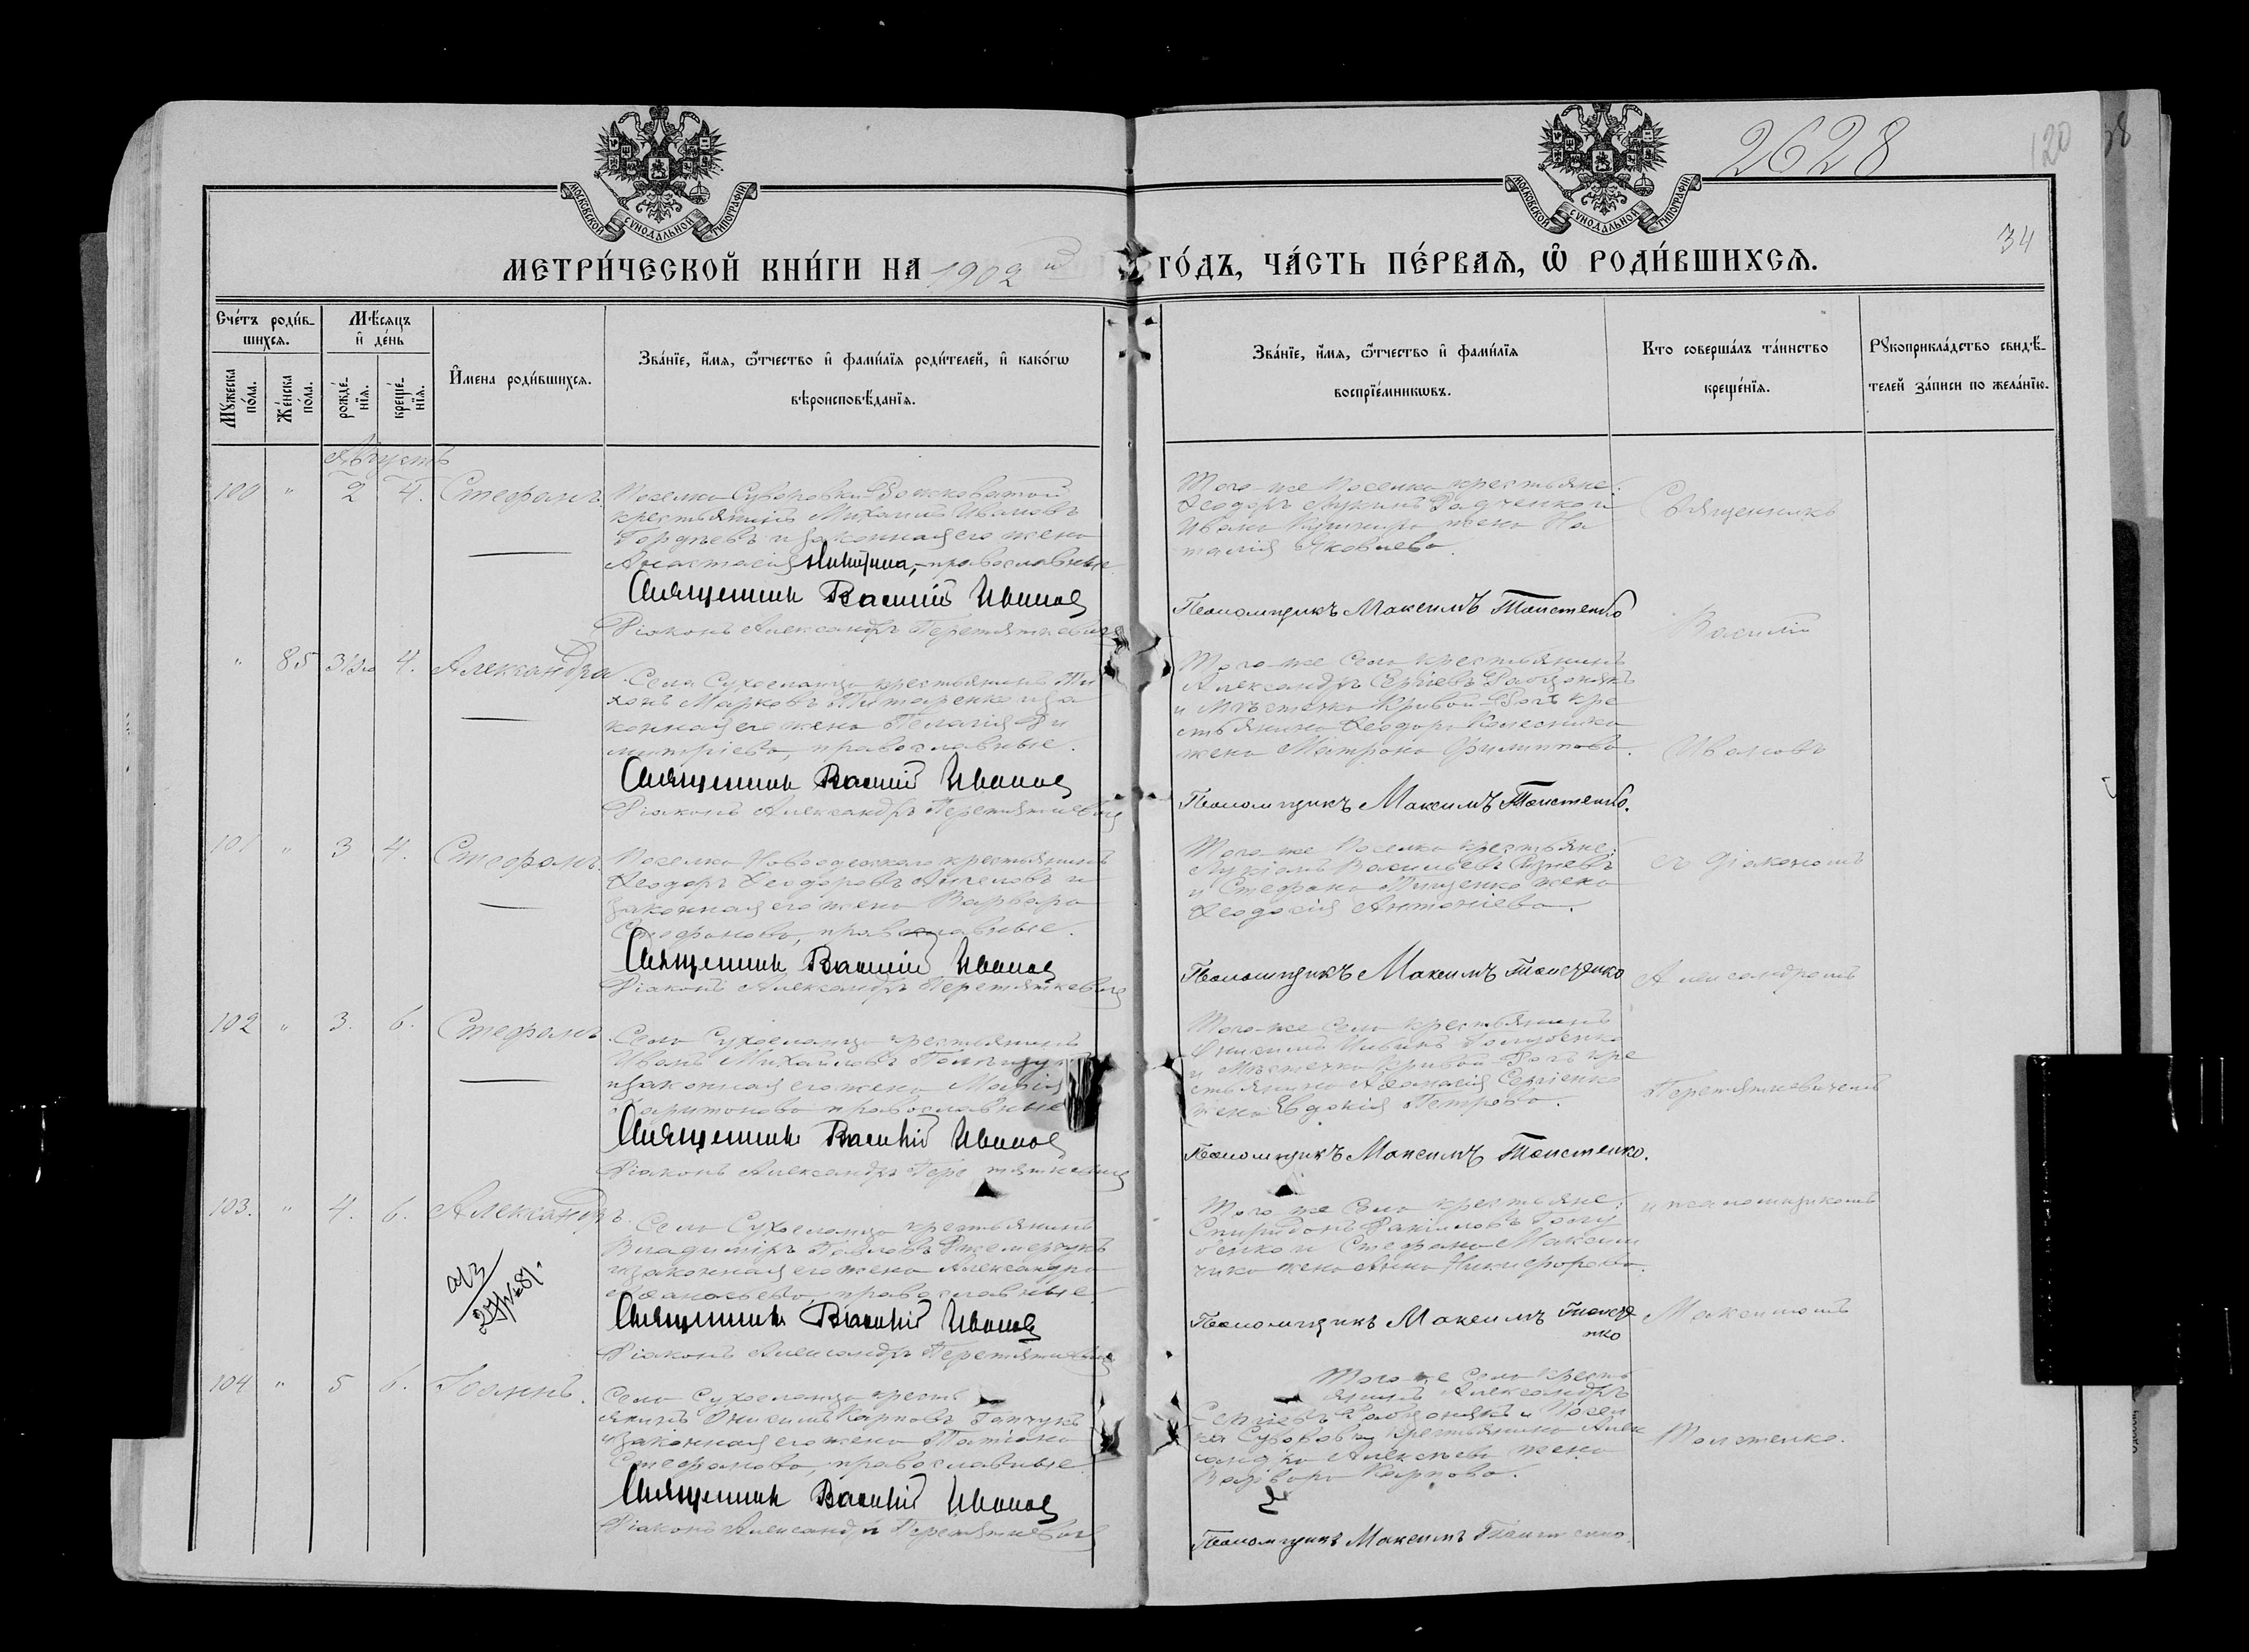 2628
120
38
34
МОСКОВСКОЙ СѴНОДАЛЬНОЙ ТИПОГРАФІИ
МОСКОВСКОЙ СѴНОДАЛЬНОЙ ТИПОГРАФІИ
МЕТРИ́ЧЕСКОЙ КНИ́ГИ НА 1902й ГО́ДЪ, ЧА́СТЬ ПЕ́РВАѦ, Ѡ҆ РОДИ́ВШИХСѦ.
Сче́тъ роди́в-
шихсѧ.
Мꙋ́жеска по́ла.
Же́нска по́ла.
Мѣ́сѧцъ и҆ де́нь
рожде́-
нїѧ.
креще́-
нїѧ.
И҆мена роди́вшихсѧ.
Зва́нїе, и҆́мѧ, ѻ҆́тчество и҆ фами́лїѧ роди́телей, и҆ како́гѡ
вѣроисповѣ́данїѧ.
Зва́нїе, и҆́мѧ, ѻ҆́тчество и҆ фами́лїѧ
воспрїе́мникѡвъ.
Кто соверша́лъ та́инство
креще́нїѧ.
Рꙋкоприкла́дство свидѣ́-
телей за́писи по жела́нїю.
Августъ
100 " 2 4. Стефанъ.
Поселка Суворовки
крестьянинъ Михаилъ Ивановъ
Гордѣевъ и законная его жена
Анастасія Никитина, православные
Священникъ Василій Ивановъ
Діаконъ Александръ Перетяткевичъ
Того-же поселка крестьяне:
Ѳеодоръ Лукинъ Радченко и
Ивана жена На
талія Яковлева.
Псаломщикъ Максимъ Толстенко
Священникъ
Василій
" 85 31 іюл 4. Александра
Села Сухоеланца крестьянинъ Ти
хонъ Марковъ Титаренко и за
конная его жена Пелагія Ди
митріева, православные.
Священникъ Василій Ивановъ
Діаконъ Александръ Перетяткевичъ
Того-же села крестьянинъ
Александръ Сергіевъ
и мѣстечка Кривой-Рогъ кре
стьянина Ѳеодора Колесника
жена Матрона Филиппова.
Псаломщикъ Максимъ Толстенко.
Ивановъ
101 " 3 4. Стефанъ.
Поселка Новоодесскаго крестьянинъ
Ѳеодоръ Ѳеодоровъ Ангеловъ и
законная его жена Варвара
Стефанова, православные.
Священникъ Василій Ивановъ
Діаконъ Александръ Перетяткевичъ
Того-же поселка крестьяне:
Васильевъ
и Стефана Тищенко жена
Ѳеодосія Антоніева.
Псаломщикъ Максимъ Толстенко
съ діакономъ
Александромъ
102 " 3. 6. Стефанъ.
Села Сухоеланца крестьянинъ
Иванъ Михайловъ
и законная его жена Марія
Харитонова православные
Священникъ Василій Ивановъ
Діаконъ Александръ Перетяткевичъ
Того-же села крестьянинъ
Онисимъ Голубенко
и мѣстечка Кривой-Рогъ кре
стьянина Аѳанасія Сергіенко
жена Евдокія Петрова.
Псаломщикъ Максимъ Толстенко.
Перетяткевичемъ
103. " 4. 6. Александръ.
Села Сухоеланца крестьянинъ
Владиміръ Павловъ
и законная его жена Александра
Аѳанасьева, православные.
Священникъ Василій Ивановъ
Діаконъ Александръ Перетяткевичъ
Того-же села крестьяне:
Спиридонъ Даніиловъ Голу
бенко и Стефана Максим
чика жена Анна Никифорова.
Псаломщикъ Максимъ Толсте
нко
и псаломщикомъ
Максимомъ
104 " 5 6. Іоаннъ.
Села Сухоеланца кресть
янинъ Онисимъ Карповъ Гапчукъ
и законная его жена Татіана
Стефанова, православные
Священникъ Василій Ивановъ
Діаконъ Александръ Перетяткевичъ
Того-же села кресть
янинъ Александръ
Сергіевъ и посел
ка Суворовки крестьянина Алек
сандра Алексѣева жена
Варвара Карпова.
Псаломщикъ Максимъ Толстенко.
Толстенко.